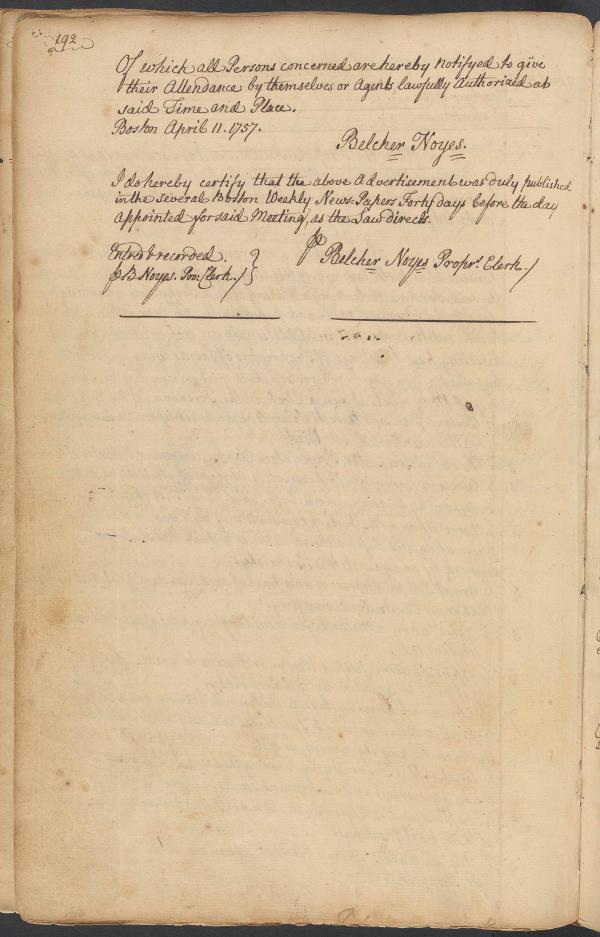 192
Of which all Persons concerned are hereby notifyed to give
their Attendance by themselves or Agents lawfully Authorized at
said Time and Place.
Boston April 11. 1757.
Belcher Noyes.
I do hereby certify that the above Advertisement was duly published
in the several Boston Weekly News-Papers Forty days before the day
appointed for said Meeting, as the Law directs.
Entred & recorded.
⅌ Belcher Noyes Proprs. Clerk./
⅌ B Noyes. Pro: Clerk./